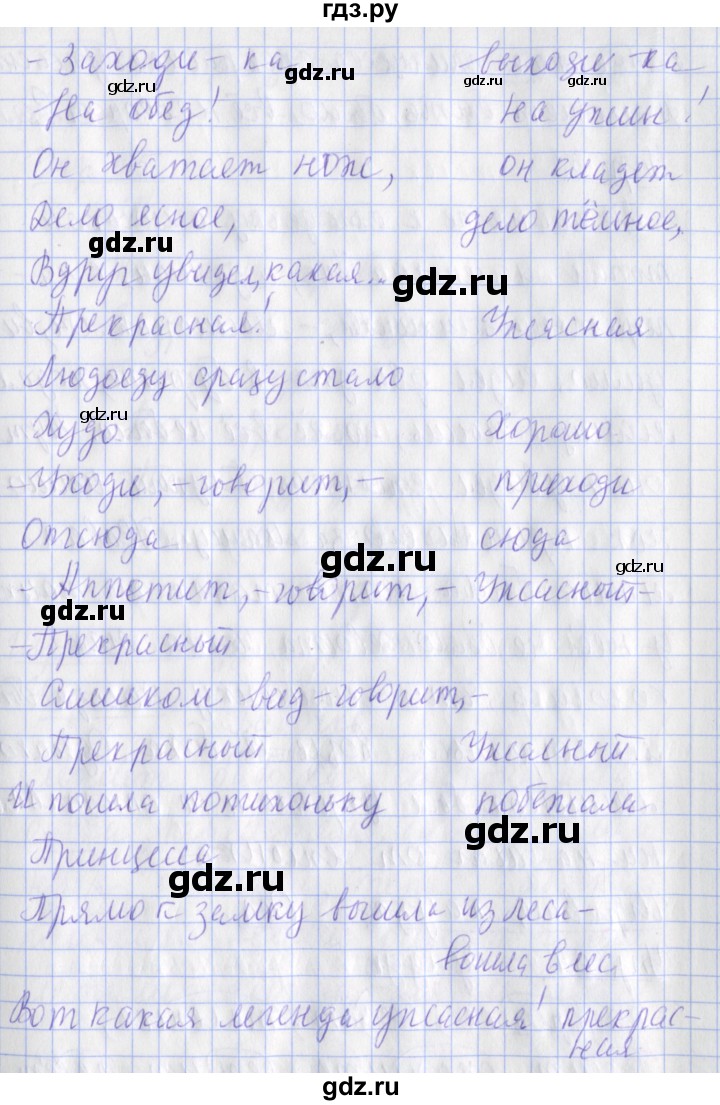 гдз.ру
- Заходи - ка выходи ка
gdz.ru gdz.ru gdz.ru
На обед! на ужин!
Он хватает нож, он кладет
Дело ясное, дело тёмное,
gdz.ru gdz.ru
Вдруг увидел, какая...
gdz.ru
Прекрасная! Ужасная
Людоеду сразу стало
gdz.ru
Худо Хорошо
- Уходи, - говорит, - приходи
Отсюда сюда
gdz.ru gdz.ru
- Аппетит, - говорит, - Ужасный -
gdz.ru
- Прекрасный
Слишком вид - говорит, -
Прекрасный Ужасный
И пошла потихоньку побежала
gdz.ru
Принцесса
gdz.ru
Прямо к замку вышла из леса -
вошла в лес
Вот какая легенда ужасная! прекрас-
ная
gdz.ru